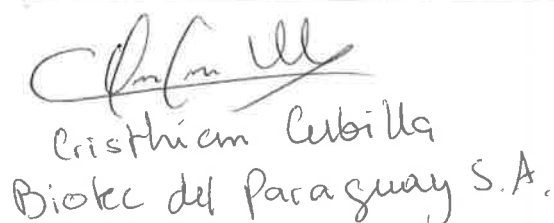 Cristhian Cubilla
Biotec del Paraguay S.A.